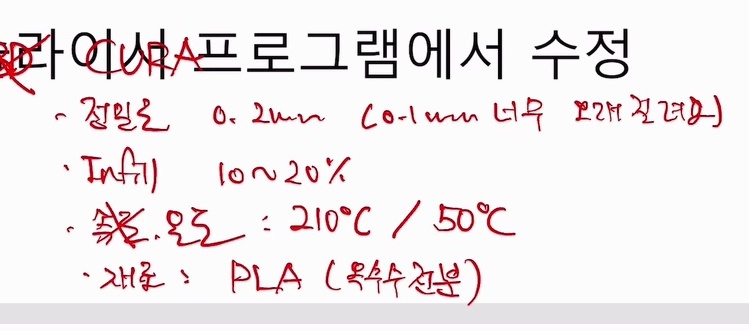 라이서 프로그램에서 수정
CURA
- 정밀도 0.2mm (0.1mm 너무 오래 걸려요)
· Infill 10~20%
· 온도 : 210℃ / 50℃
· 재료 : PLA (옥수수 전분)